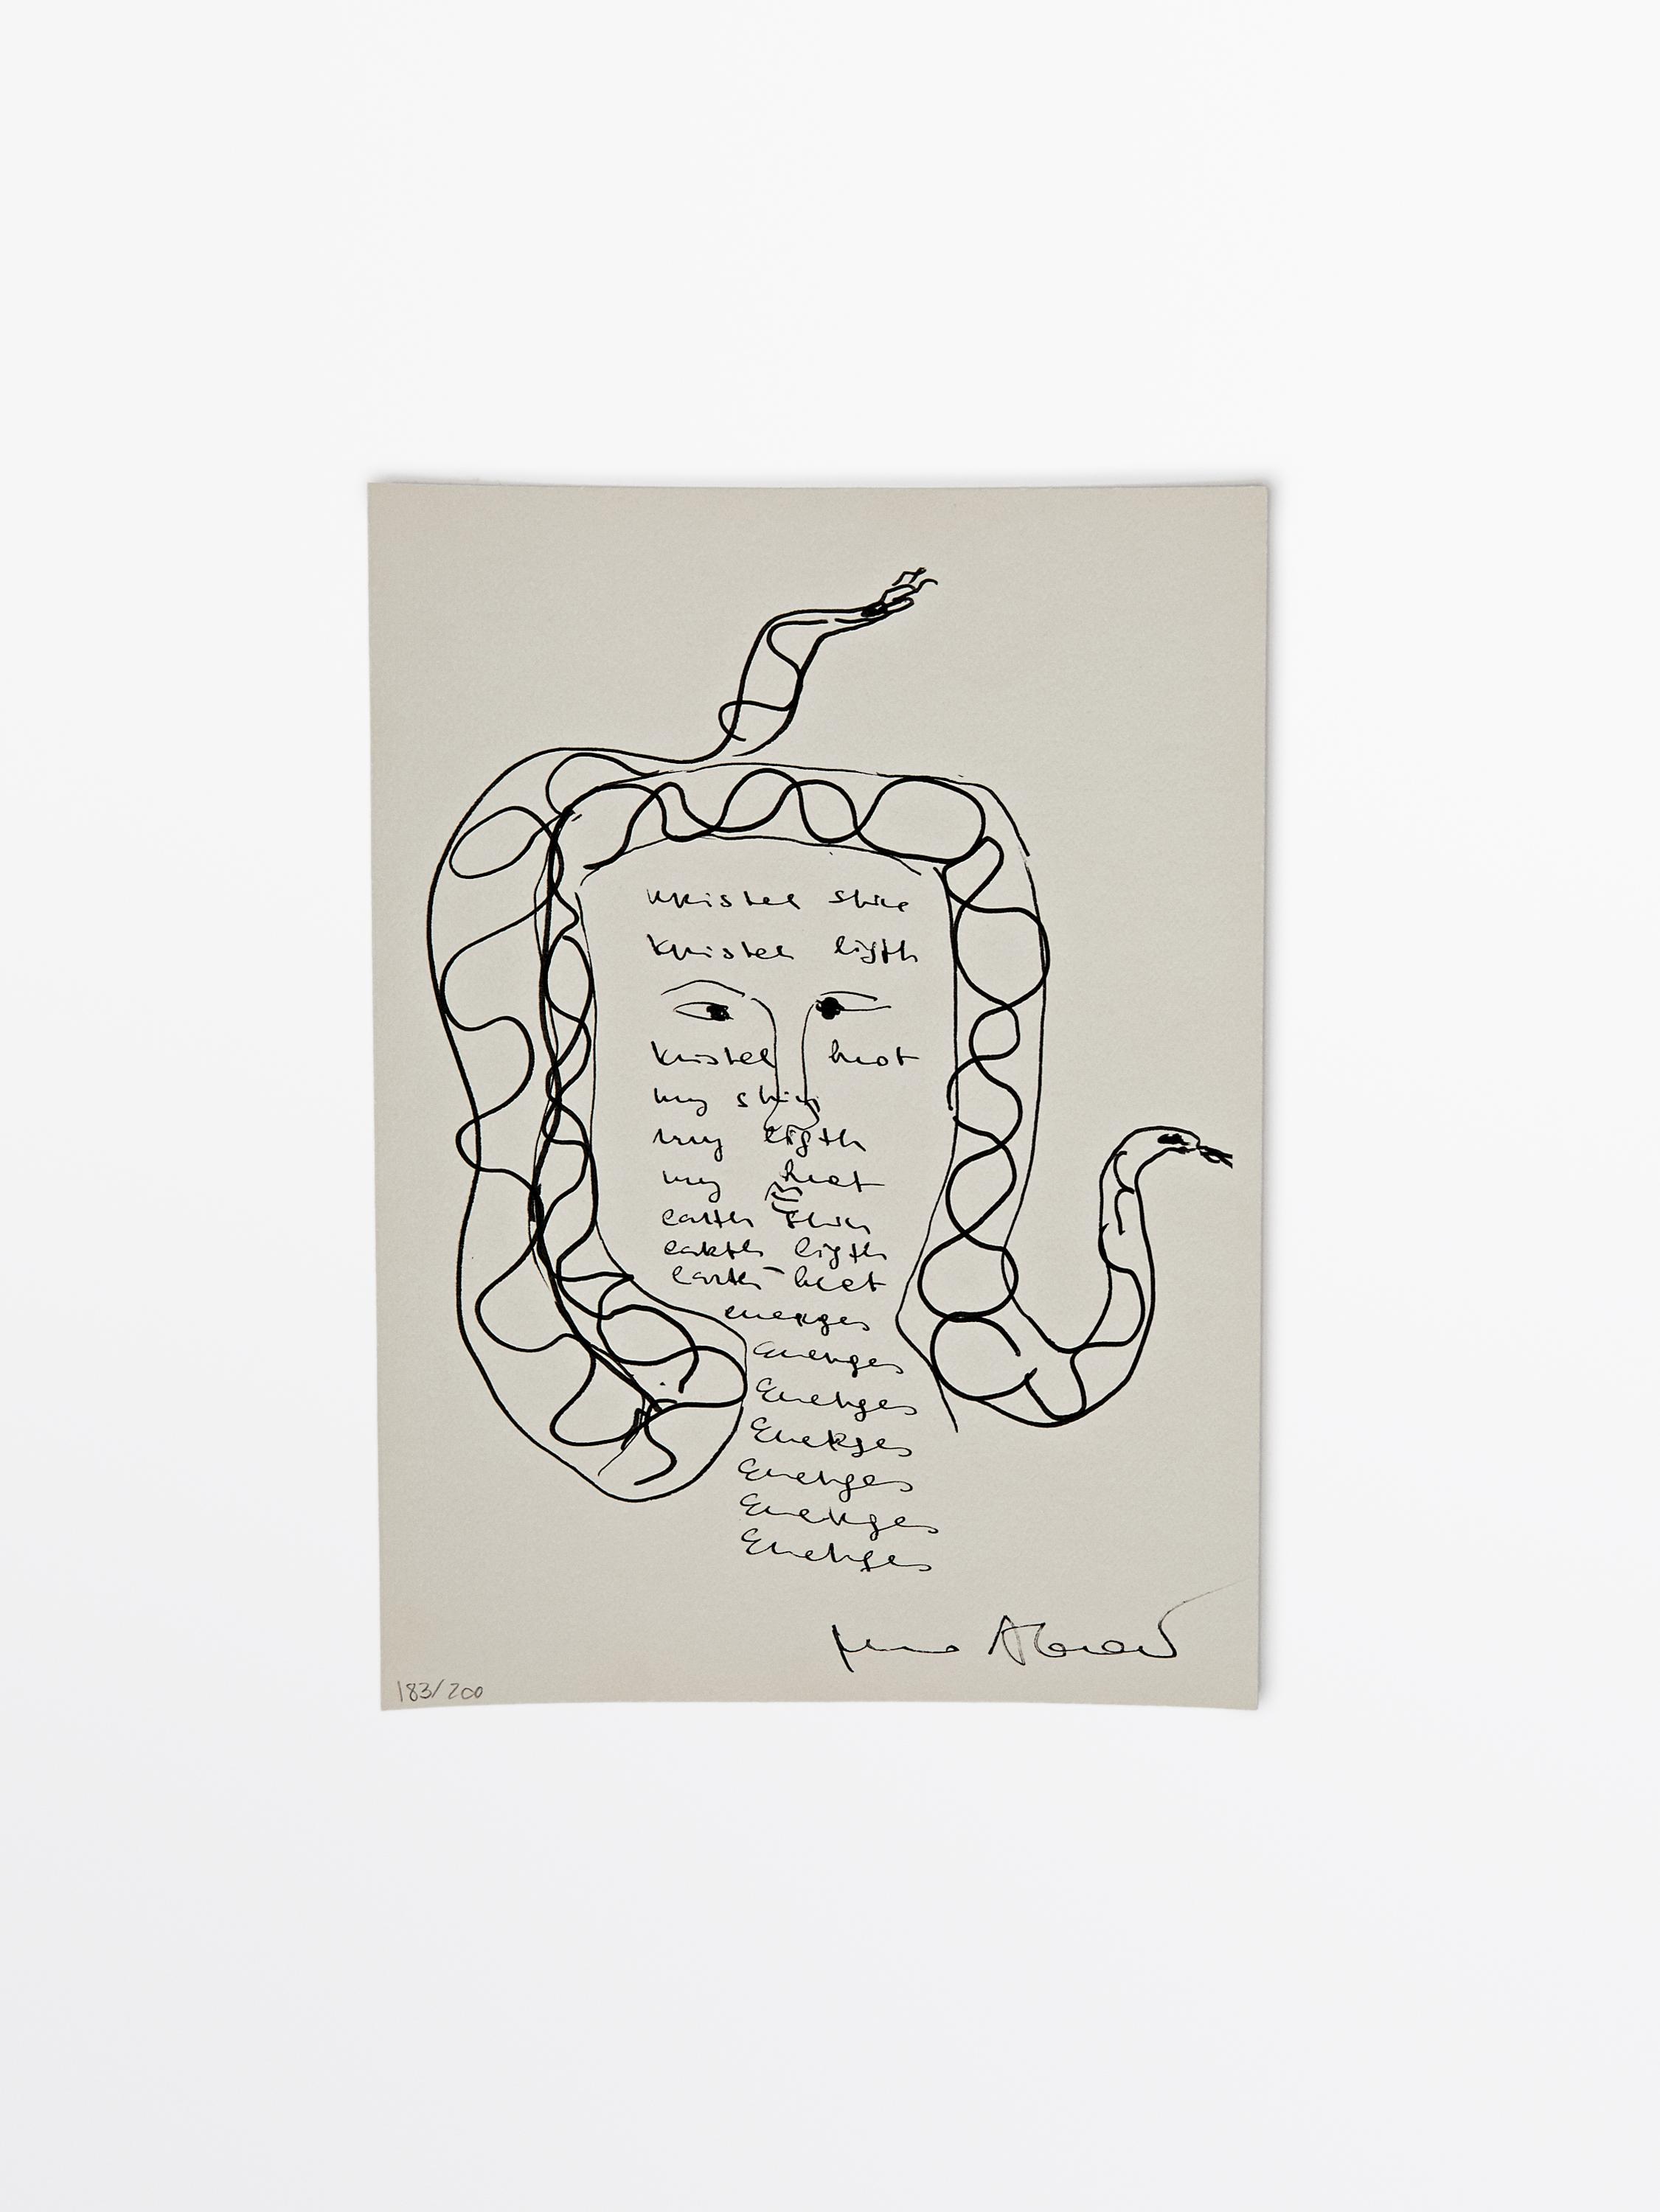 kristel shin
kristel ligth
kristel heat
my skin
my ligth
my heat
earth skin
earth ligth
earth heet
energes
Energes
Energes
Energes
Energes
Energes
Energes
183/200